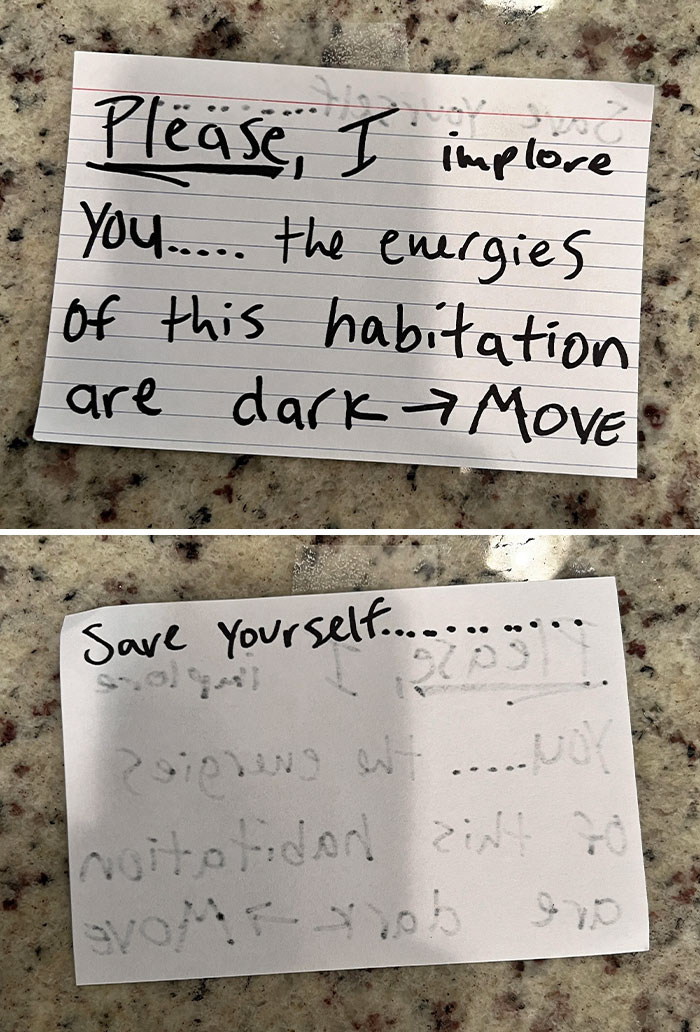 Please, I implore
You..... the energies
of this habitation
are dark → MOVE
Save Yourself.............